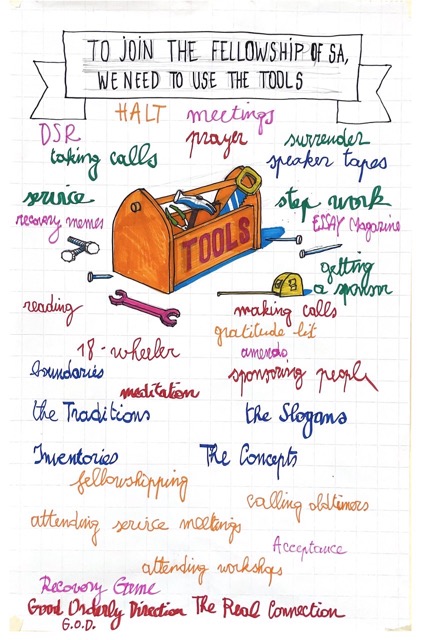 TO JOIN THE FELLOWSHIP OF SA,
WE NEED TO USE THE TOOLS
HALT meetings
DSR prayer surrender
taking calls speaker tapes
service step work
recovery memes ESSAY Magazine
TOOLS
getting
a sponsor
reading making calls
gratitude list
18-wheeler amends
boundaries sponsoring people
meditation
the Traditions the Slogans
Inventories The Concepts
fellowshipping
calling oldtimers
attending service meetings
Acceptance
attending workshops
Recovery Game
Good Orderly Direction The Real Connection
G.O.D.